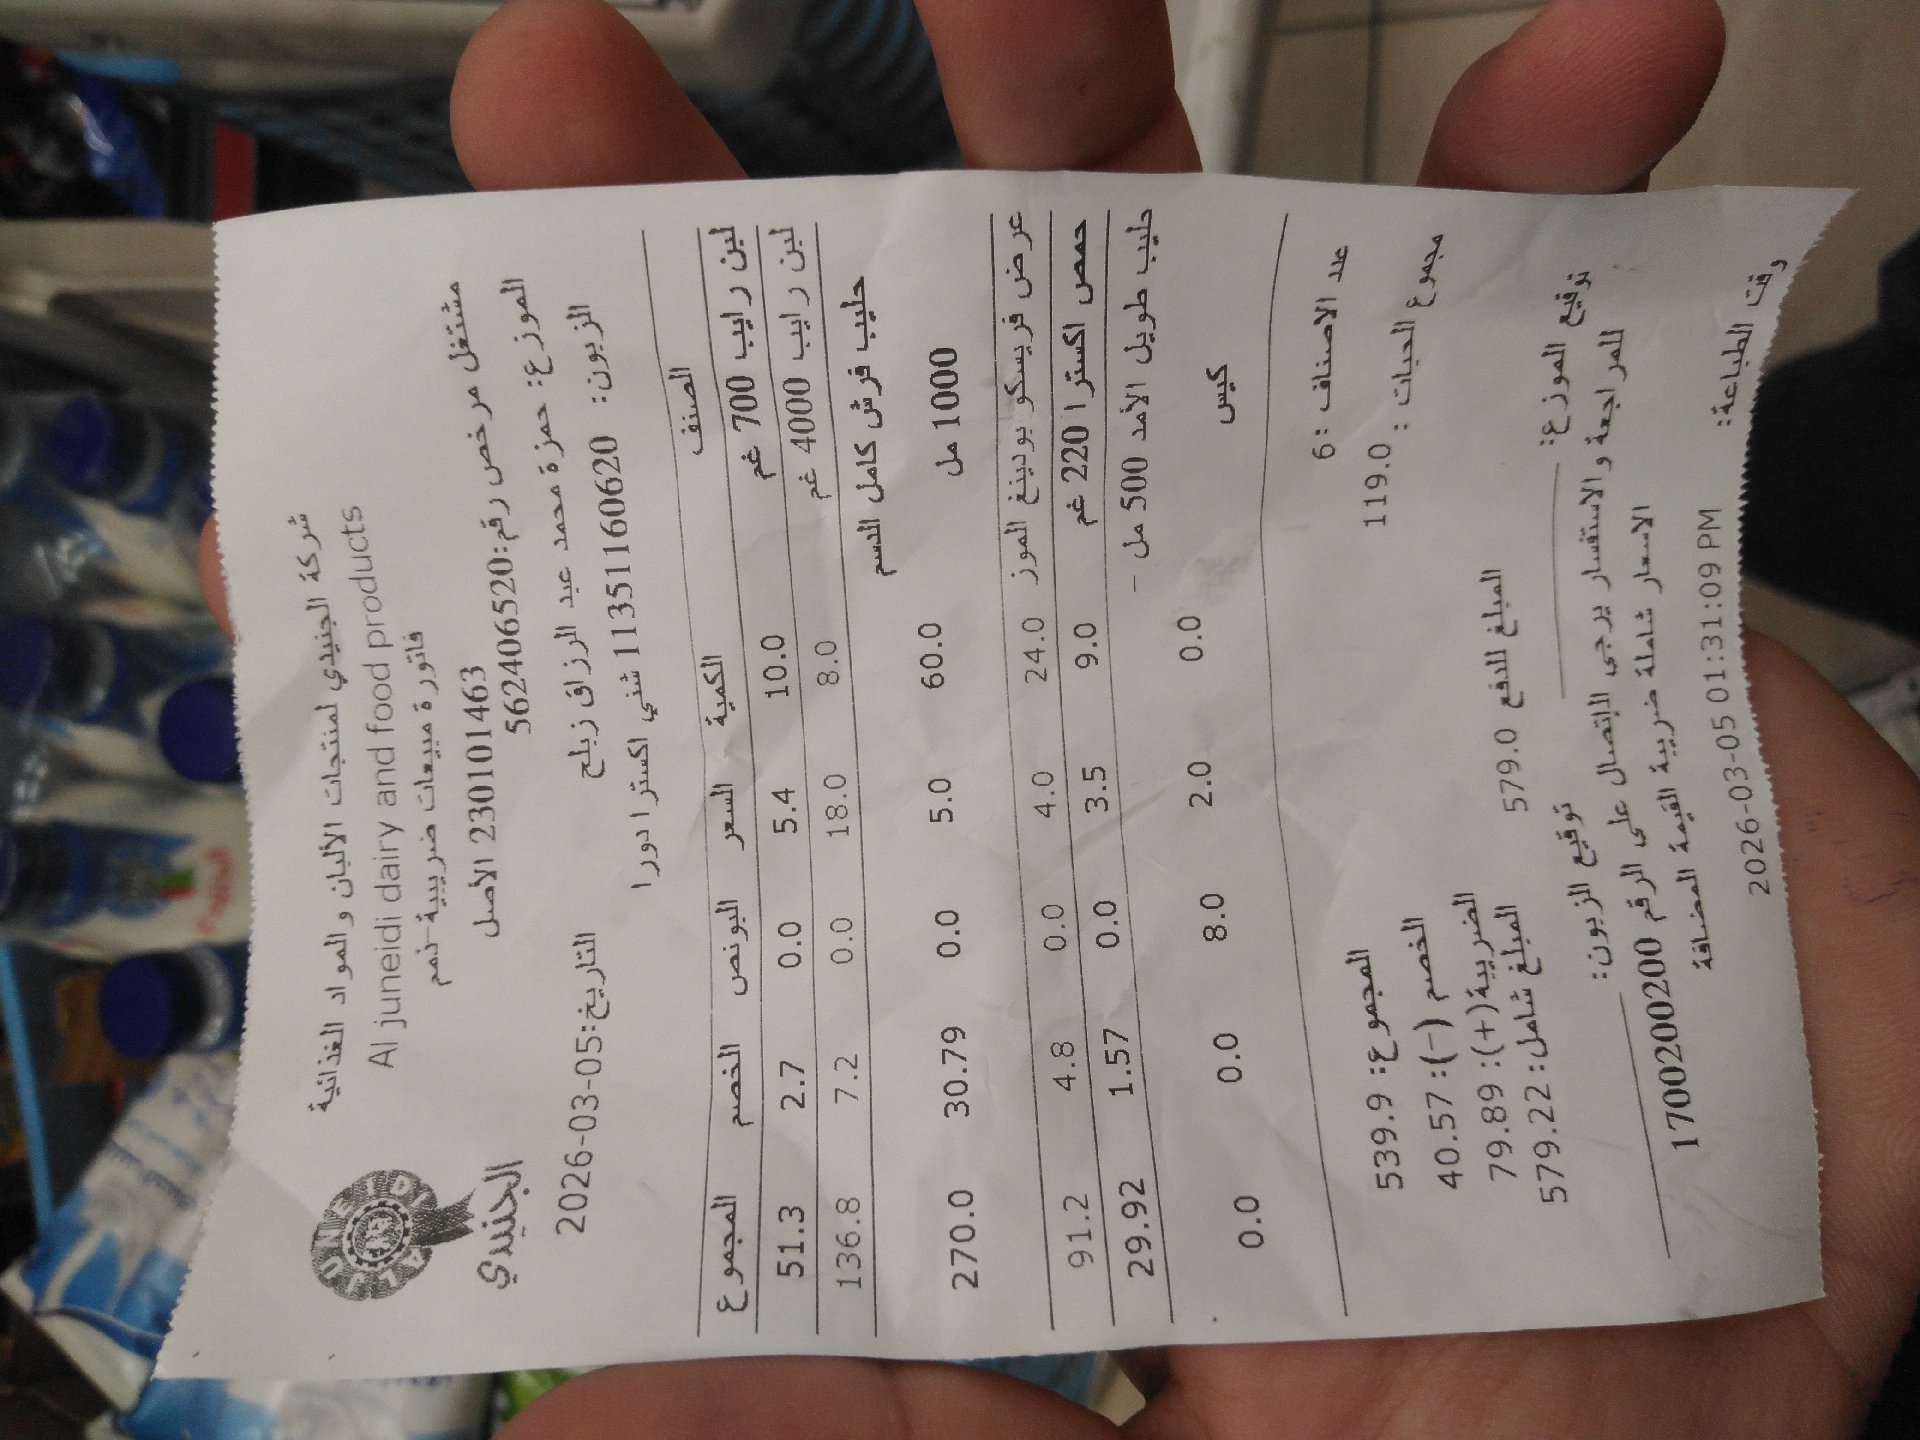 شركة الجنيدي لمنتجات الألبان والمواد الغذائية
Al juneidi dairy and food products
فاتورة مبيعات ضريبية-نمم
AL JUNEIDI
الجنيدي
مشتغل مرخص رقم:562406520
2301101463 الأصل
الموزع: حمزة محمد عبد الرزاق زبلح
التاريخ:2026-03-05
الزبون: 11351160620 شني اكسترا دورا
الصنف الكمية السعر البونص الخصم المجموع
لبن رايب 700 غم 10.0 5.4 0.0 2.7 51.3
لبن رايب 4000 غم 8.0 18.0 0.0 7.2 136.8
حليب فرش كامل الدسم 1000 مل 60.0 5.0 0.0 30.79 270.0
عرض فريسكو بودينغ الموز 24.0 4.0 0.0 4.8 91.2
حمص اكسترا 220 غم 9.0 3.5 0.0 1.57 29.92
حليب طويل الأمد 500 مل -
كيس 0.0 2.0 8.0 0.0 0.0
عدد الاصناف :6
المجموع: 539.9
مجموع الحبات : 119.0
الخصم (-): 40.57
الضريبة(+): 79.89
المبلغ شامل: 579.22
المبلغ للدفع 579.0
توقيع الموزع:
توقيع الزبون:
للمراجعة والاستفسار يرجى الإتصال على الرقم 1700200200
الاسعار شاملة ضريبة القيمة المضافة
وقت الطباعة: 2026-03-05 01:31:09 PM